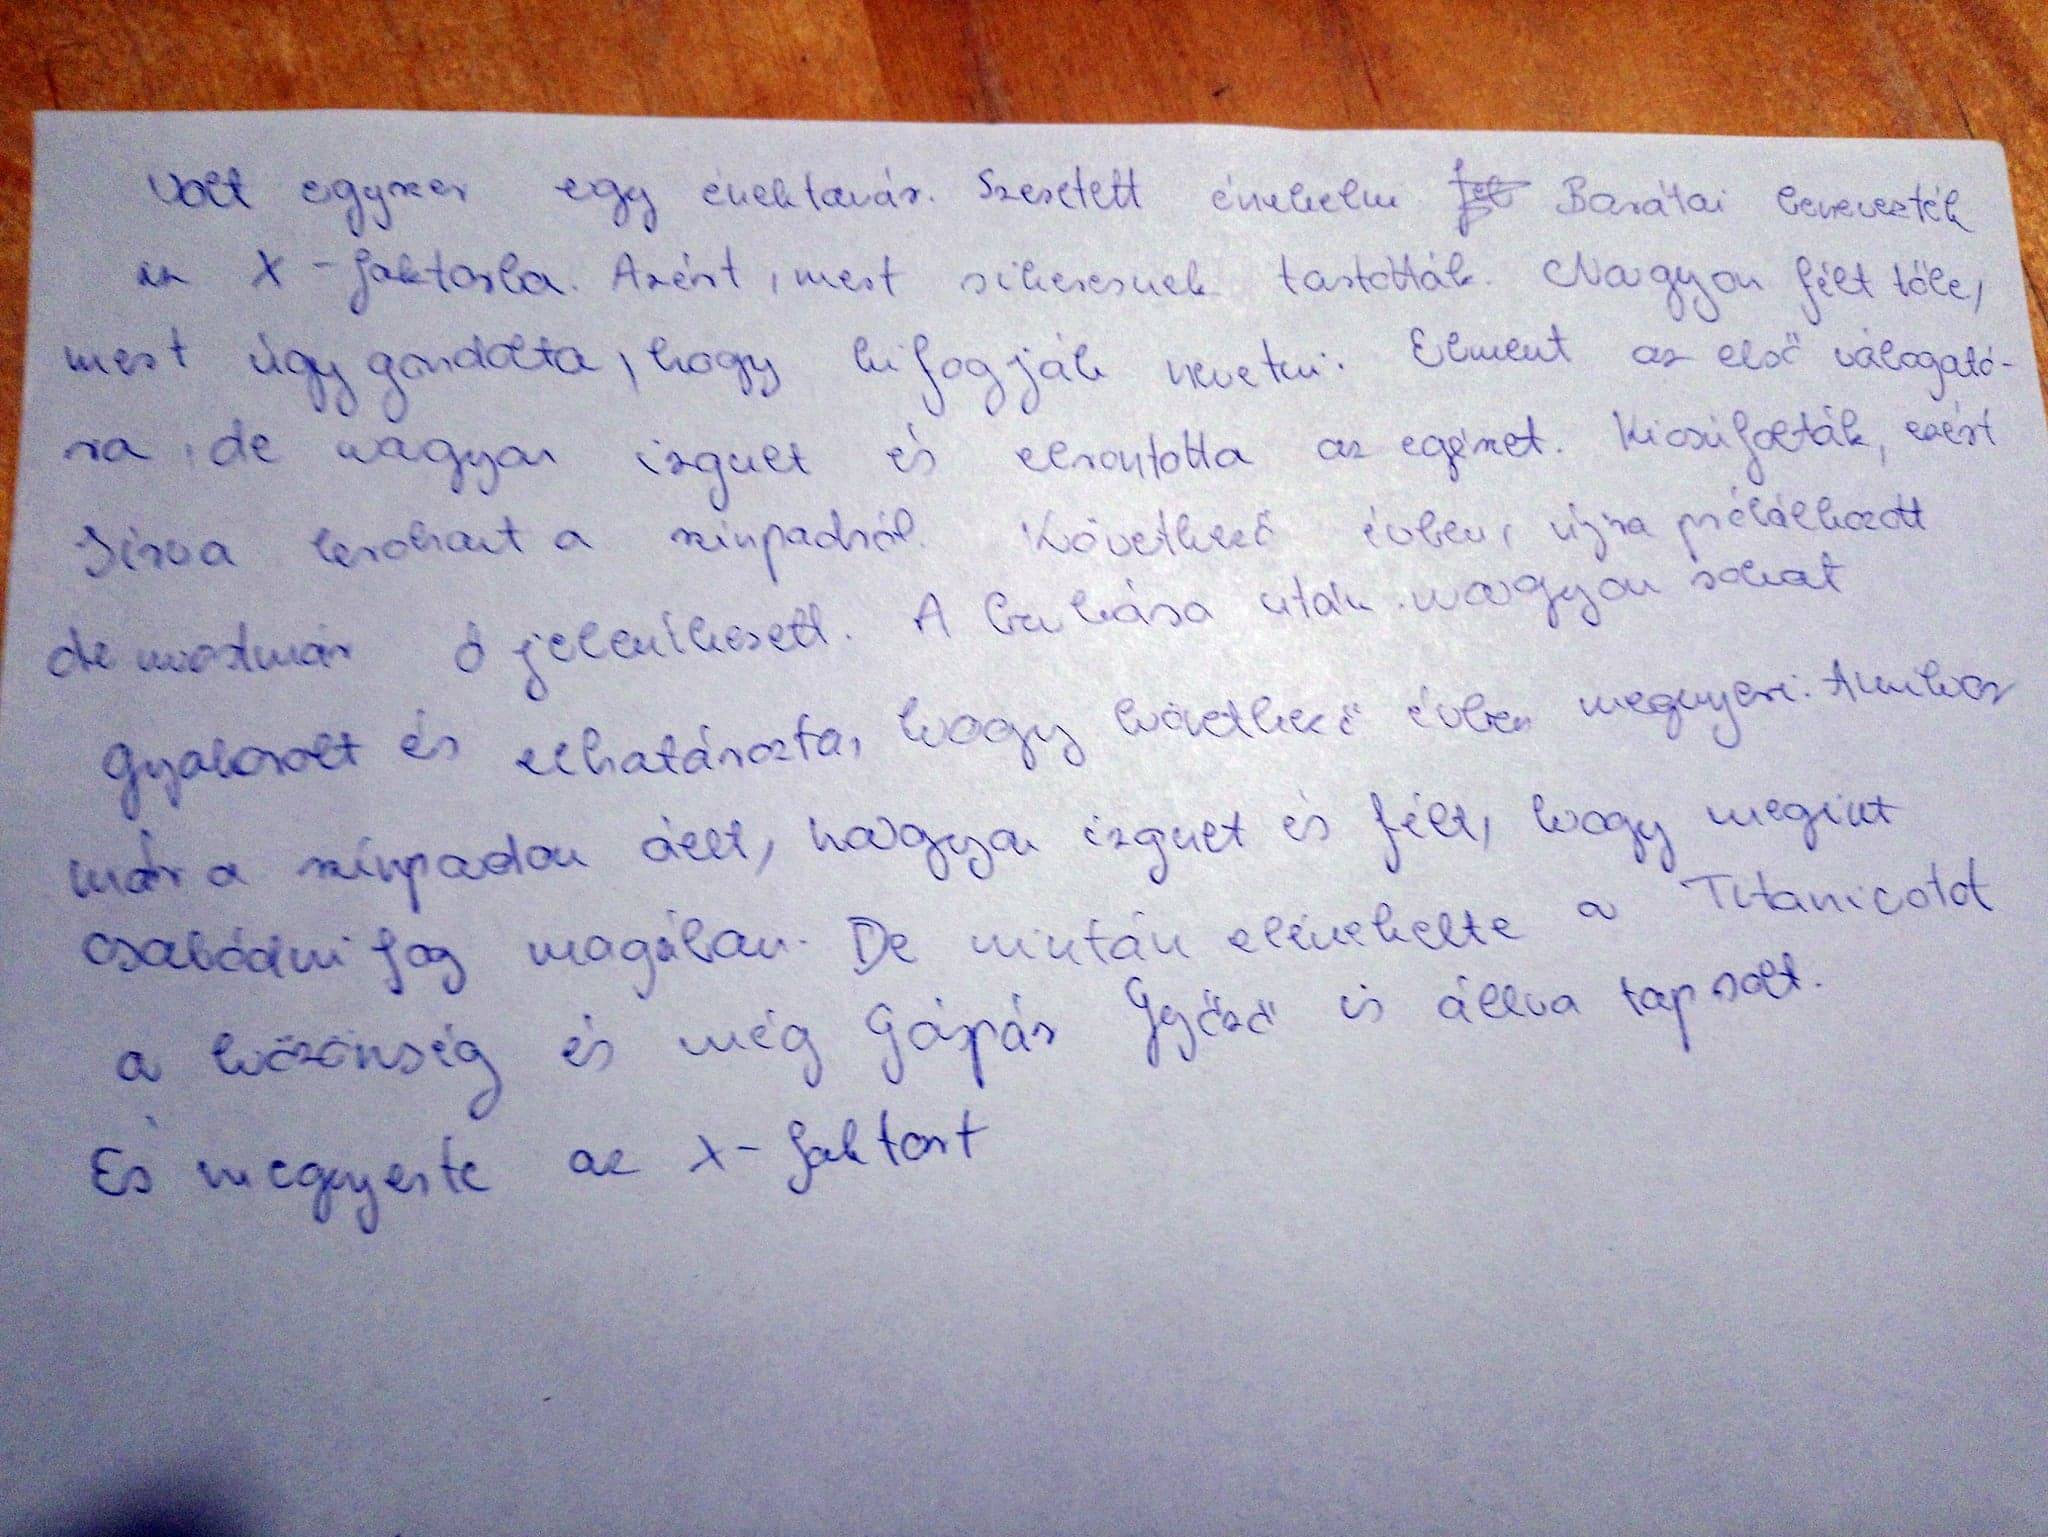 Volt egyszer egy énektanár. Szeretett énekelni Barátai benevezték
az X-faktorba. Azért, mert sikeresnek tartották. Nagyon félt tőle,
mert úgy gondolta, hogy kifogják nevetni. Elment az első válogató-
ra, de nagyon izgult és elrontotta az egészet. Kicsúfolták, ezért
Sírva lerohant a színpadról. Következő évben, újra próbálkozott
de mostmár ő jelentkezett. A bukása után nagyon sokat
gyakorolt és elhatározta, hogy következő évben megnyeri. Amikor
már a színpadon állt, nagyon izgult és félt, hogy megint
csalódni fog magában. De miután elénekelte a Titanicotot
a közönség és még Gáspár Győző is állva tapsolt.
És megnyerte az X-faktort